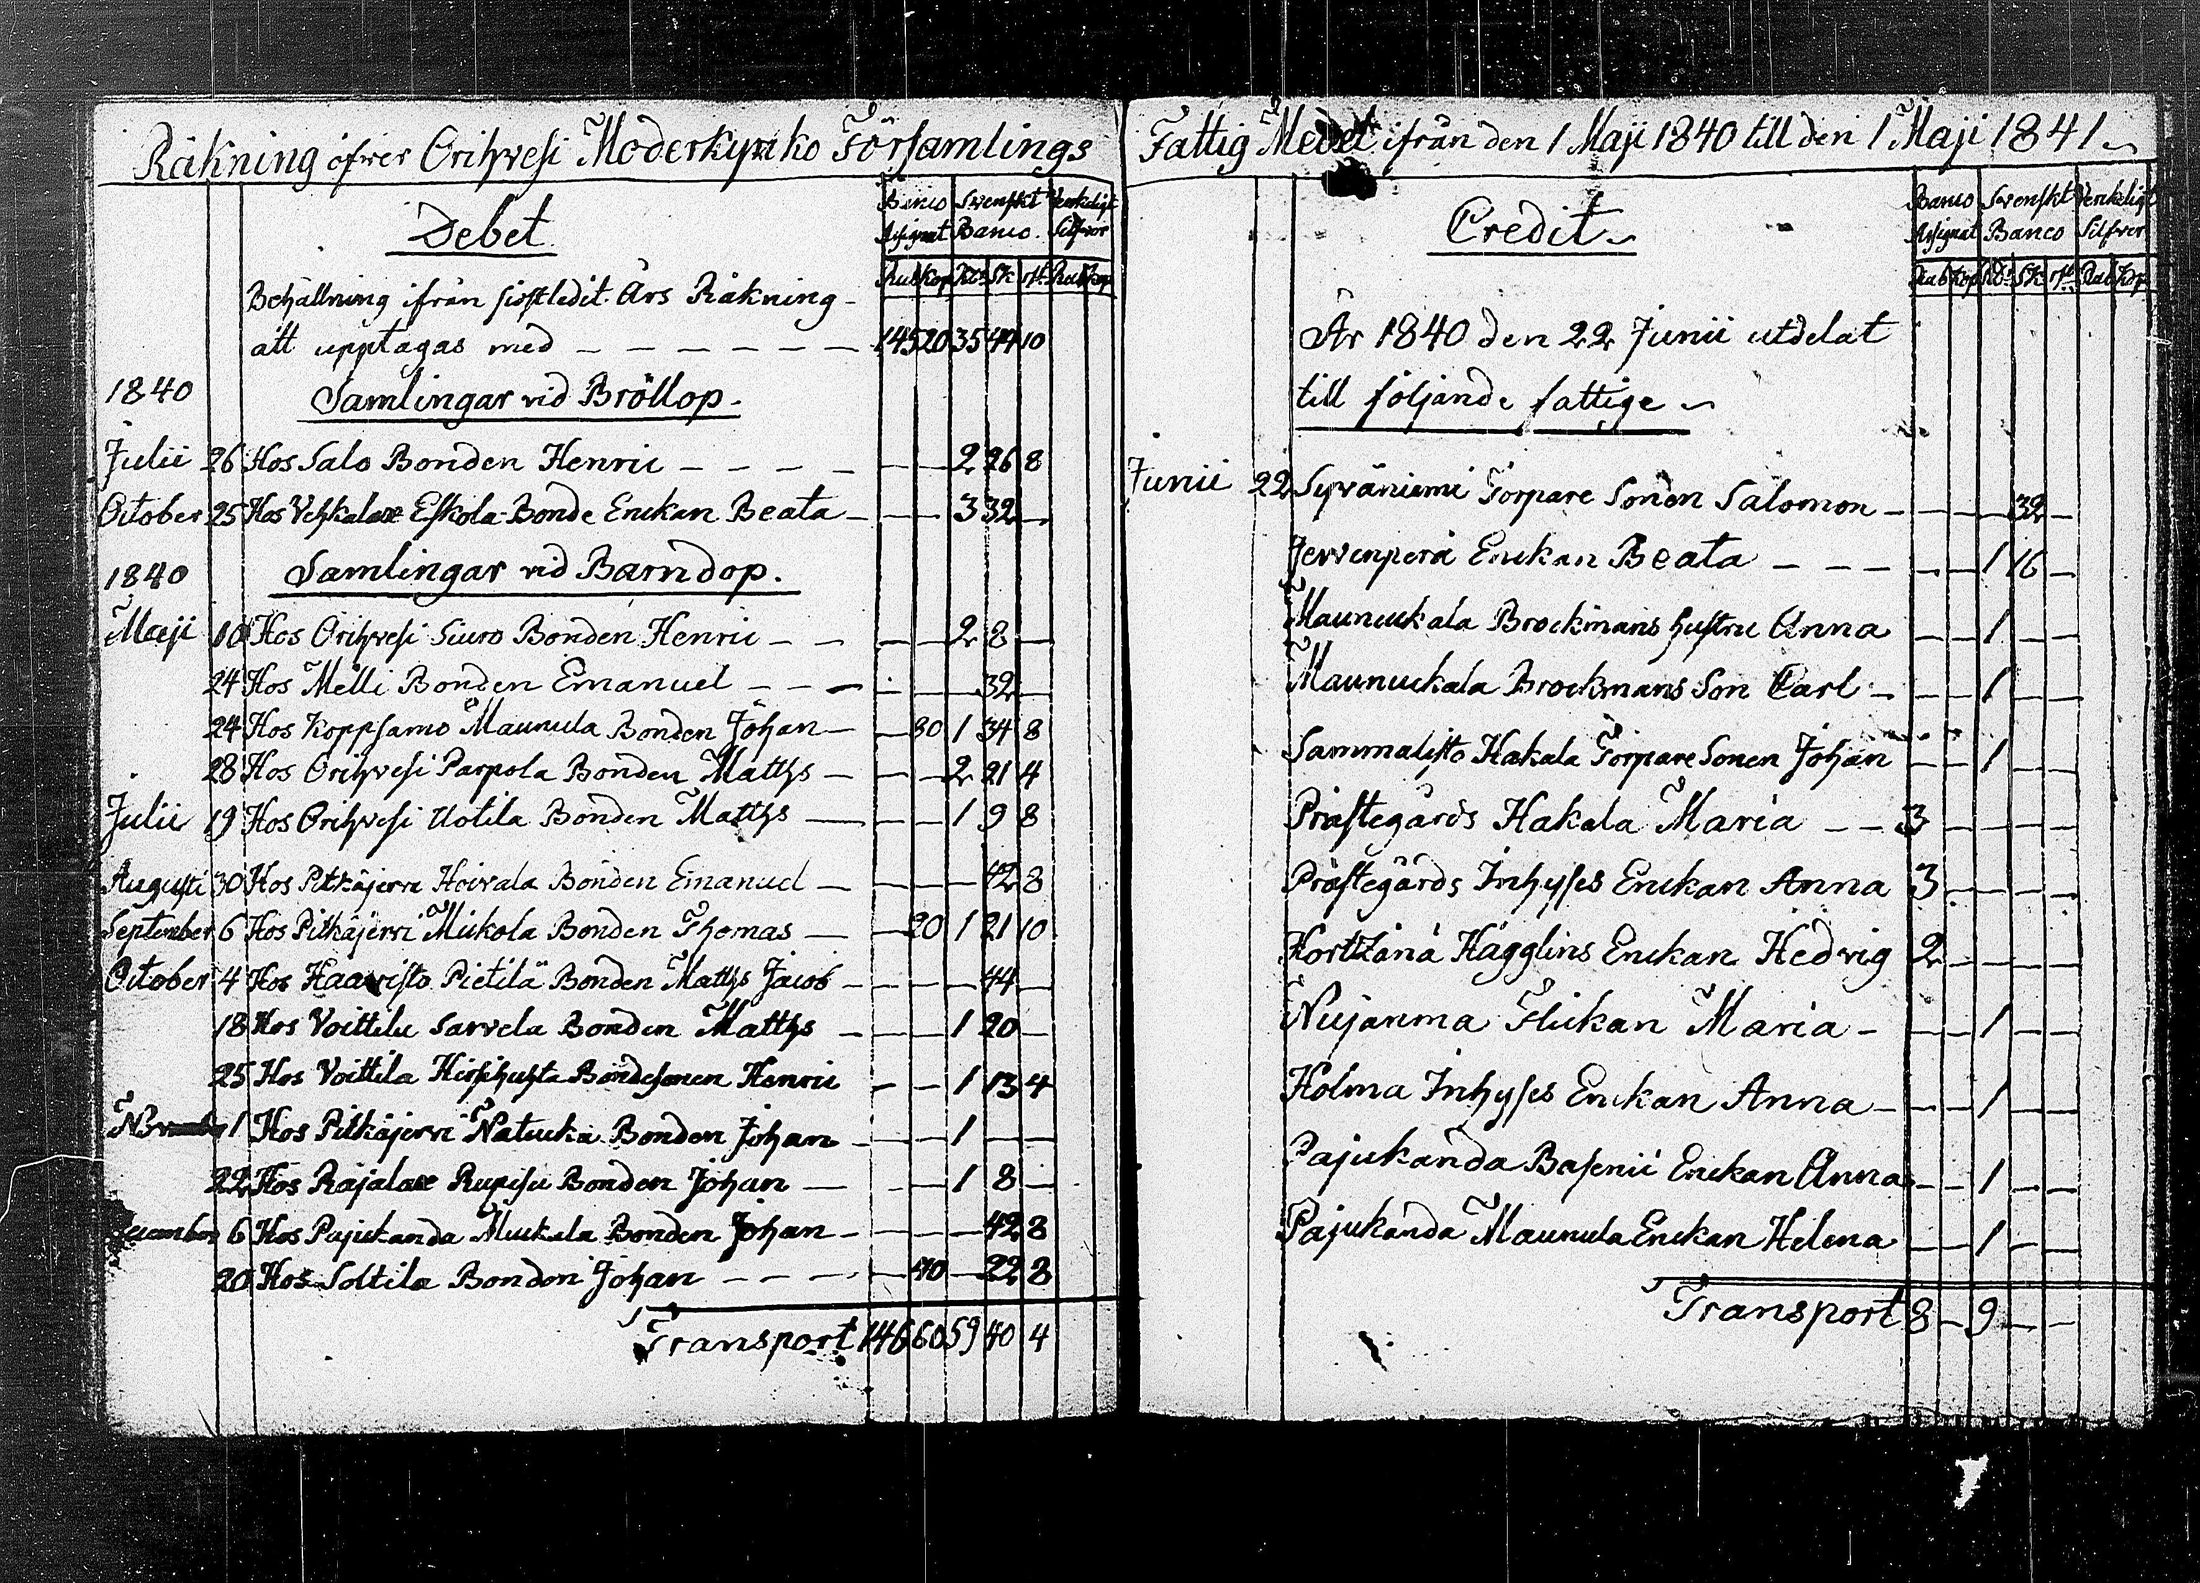 Räkning öfver Orihvesi Moderkyrko Församlings
Debet
Banco Assignat Svenskt Banco Verkeligt Silfver
Rub Kop Rd Sk rst Rub Kop
Behållning ifrån sistledit Års Räkning
att upptagas med — — — — — — 145 20 35 44 10
1840 Samlingar vid Bröllop.
Julii 26 Hos Salo Bonden Henric — — — — — — 2 26 8
October 25 Hos Vehkalax Eskola Bonde Enckan Beata — — — 3 32 —
1840 Samlingar vid Barndop.
Maji 10 Hos Orihvesi Siuro Bonden Henric — — — — 2 8 —
24 Hos Melli Bonden Emanuel — — — — — — 32 —
24 Hos Koppsamo Maunula Bonden Johan — — 80 1 34 8
28 Hos Orihvesi Parpola Bonden Matths — — — 2 21 4
Julii 19 Hos Orihvesi Uotila Bonden Matths — — — 1 9 8
Augusti 30 Hos Pitkäjervi Hoivala Bonden Emanuel — — — — 42 8
September 6 Hos Pitkäjervi Mickola Bonden Thomas — — 20 1 21 10
October 4 Hos Haavisto Pietilä Bonden Matths Jacob — — — — 44 —
18 Hos Voittila Sarvela Bonden Matths — — — 1 20 —
25 Hos Voittila Hirsihuhta Bondesonen Henric — — 1 13 4
1 Hos Pitkäjervi Natucka Bonden Johan — — — 1 — —
22 Hos Räjalax Rupisu Bonden Johan — — — 1 8 —
December 6 Hos Pajukanda Muckala Bonden Johan — — — — 42 8
20 Hos Soltila Bonden Johan — — — — — 40 — 22 8
Transport 146 60 59 40 4
Fattig Medel ifrån den 1 Maji 1840 till den 1 Maji 1841
Credit
Banco Assignat Svenskt Banco Verkeligt Silfver
Rub Kop Rd Sk rst Rub Kop
År 1840 den 22 Junii utdelat
till följande fattige
Junii 22 Syväniemi Torpare Sonen Salomon — — — — 32 —
Jervenperä Enckan Beata — — — — — 1 16 —
Maunuckala Brockmans hustru Anna — — 1 — —
Maunuckala Brockmans Son Carl — — — 1 — —
Sammalisto Hakala Torpare Sonen Johan — — 1 — —
Prästegårds Hakala Maria — — 3 — — — —
Prästegårds Inhyses Enckan Anna 3 — — — —
Hägglins Enckan Hedvig 2 — — — —
Nujanma Flickan Maria — — — 1 — —
Holma Inhyses Enckan Anna — — — 1 — —
Pajukanda Basenii Enckan Anna — — 1 — —
Pajukanda Maunula Enckan Helena — — 1 — —
Transport 8 — 9 — —